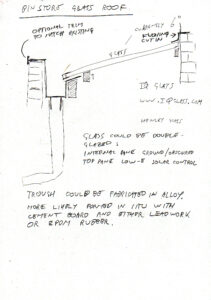 BIN STORE GLASS ROOF.
OPTIONAL TRIM
TO MATCH EXISTING
CURRENTLY
FLASHING
CUT IN
GLASS
IQ GLASS
WWW.IQGLASS.COM
GLASS COULD BE DOUBLE-
GLAZED:
INTERNAL PANE GROUND/OBSCURED
TOP PANE LOW-E SOLAR CONTROL
TROUGH COULD BE FABRICATED IN ALLOY.
MORE LIKELY FORMED IN SITU WITH
CEMENT BOARD AND EITHER LEADWORK
OR EPDM RUBBER.